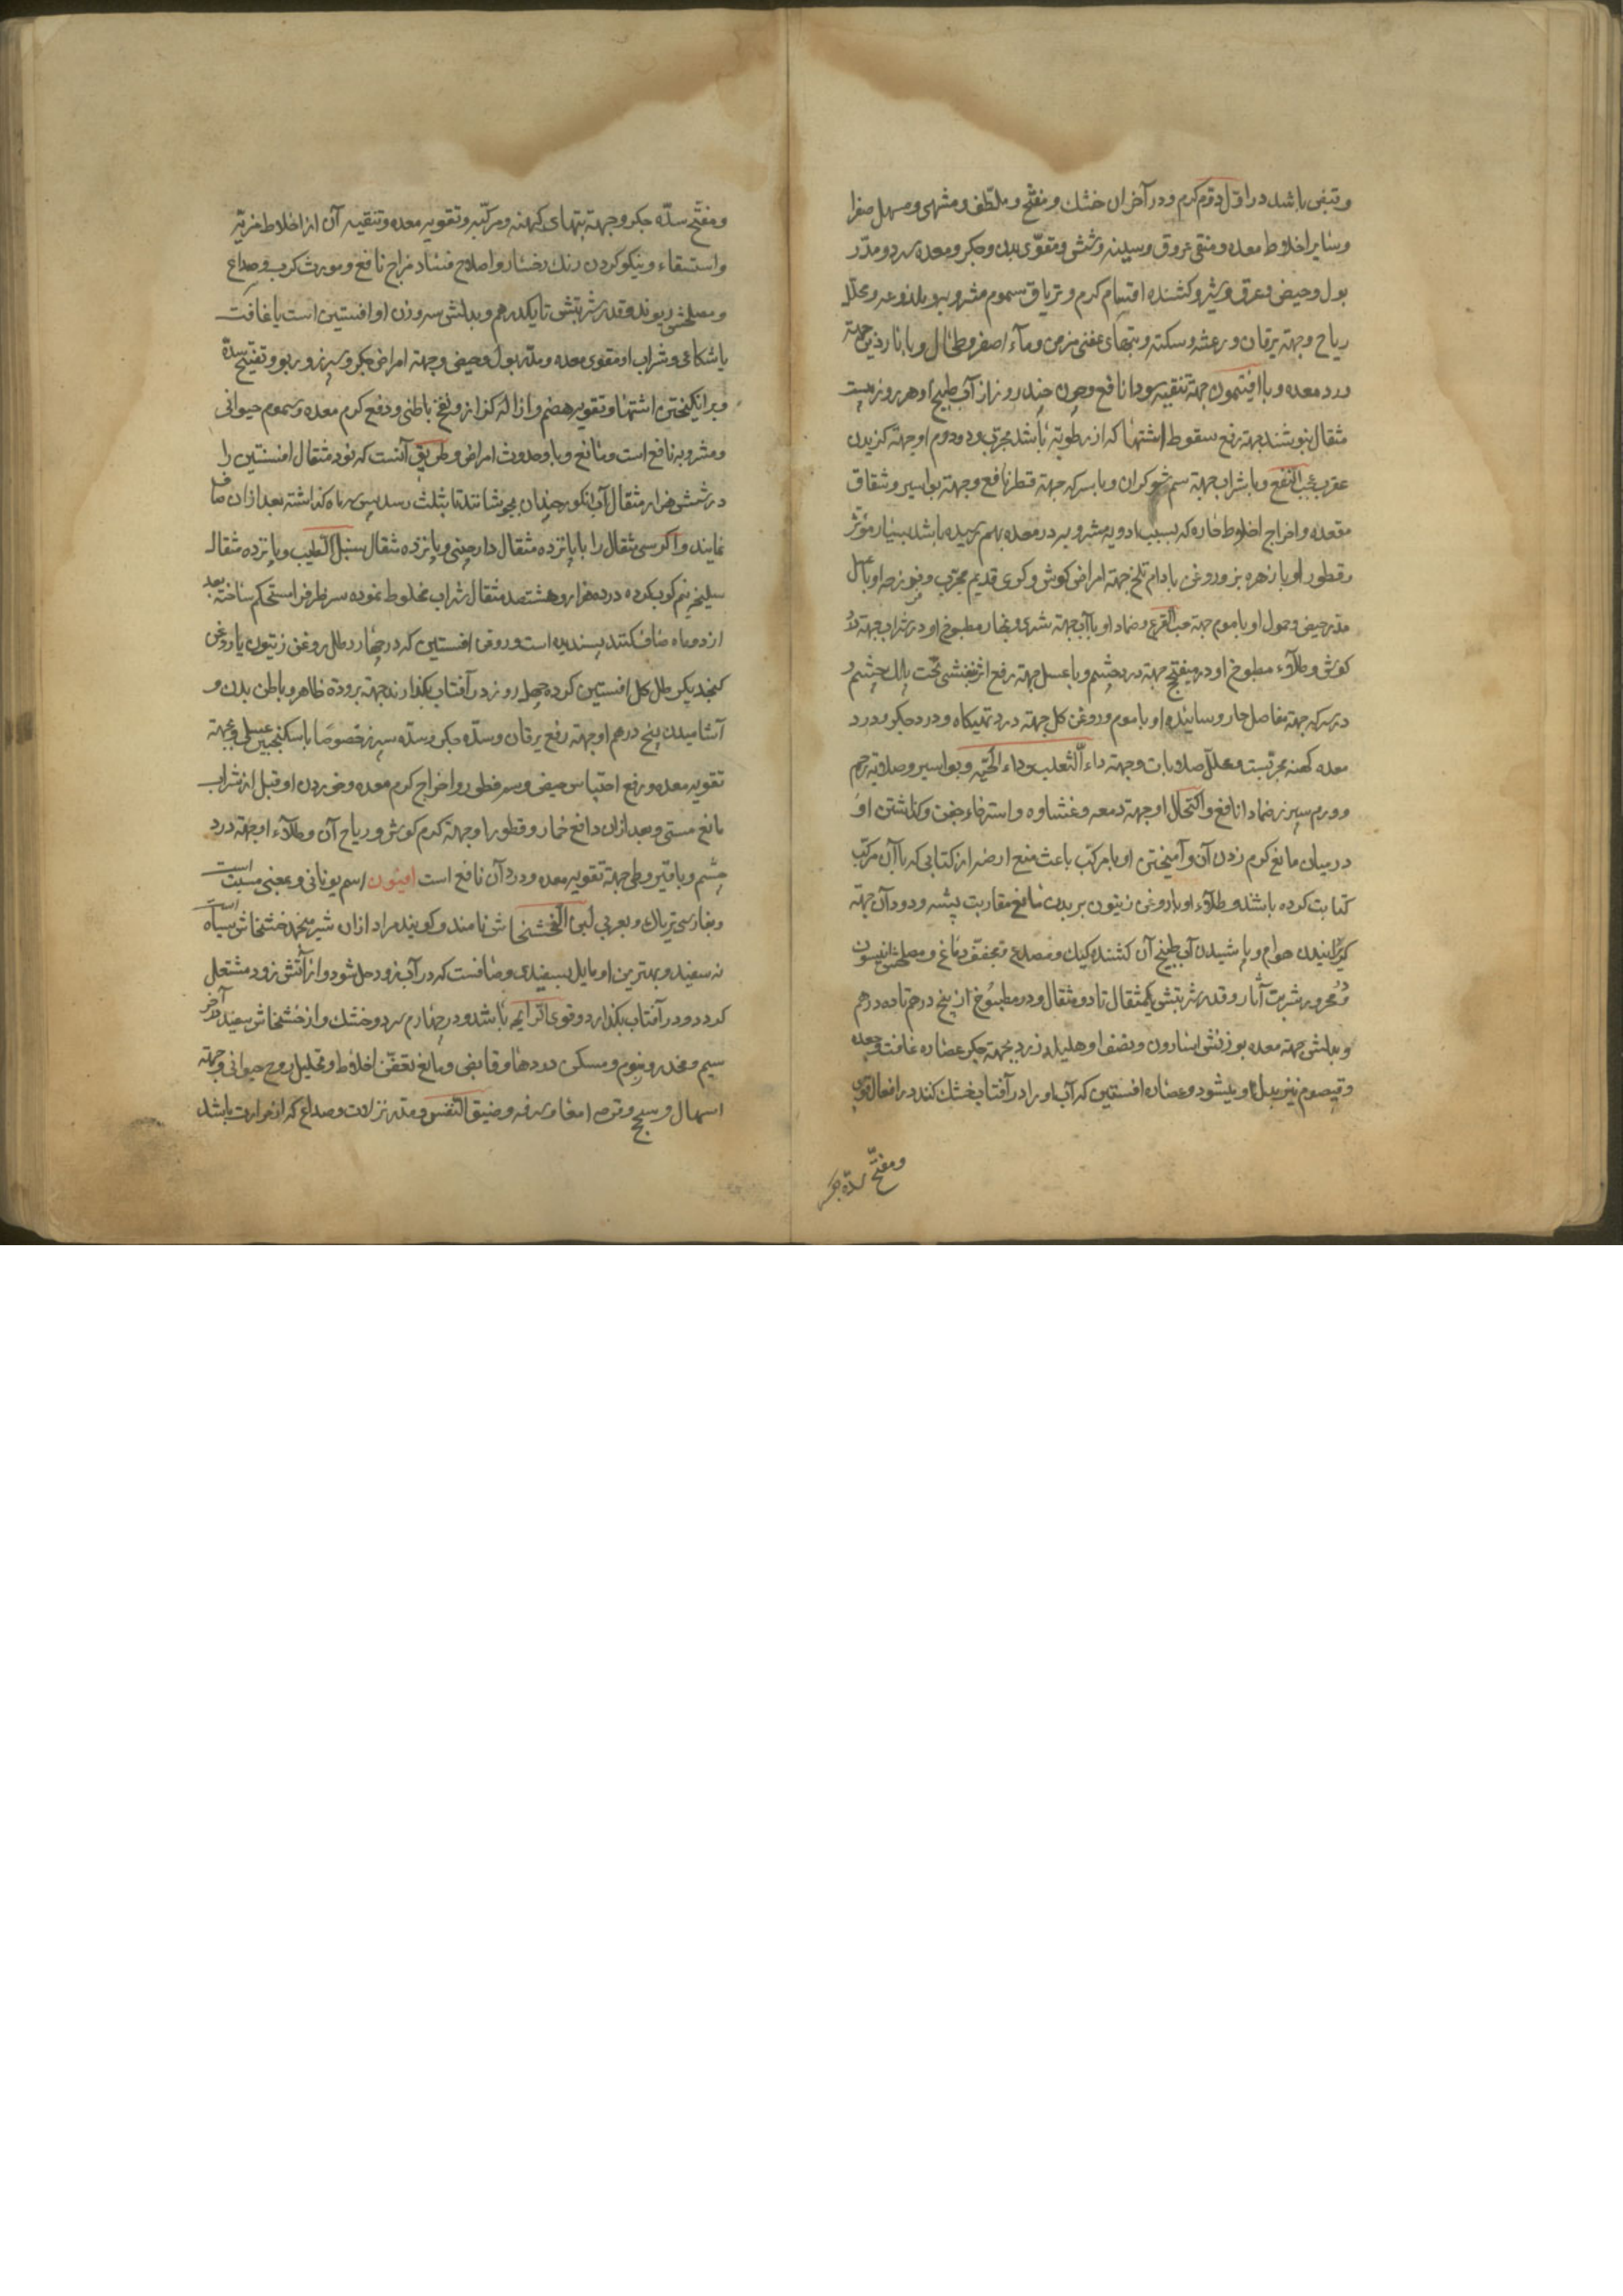 وتبقی باشد در اوّل دوّم کرم ودر آخر ان خشك ومفتّح وملطّف ومشهی ومسهل صفرا
وسایر اخلاط معده ومنقی عروق وسینه وشش ومقوّی بدن وجکر ومعده سرد ومدّر
بول وحیض وعرق وشیر وکشنده اقسام کرم وتریاق سموم مشروبه وملذوعه ومحلّل
ریاح وجهته یرقان ورعشه وسکته وتبهای عفنی مزمن ومآء اصفر وطحال وبا ناردین جهته
درد معده وبا افیتمون جهته تنقیه سودا نافع وچون چند روز از آب طبیخ او هر روز بیست
مثقال بنوشند جهته رفع سقوط اشتها که از رطوبته باشد مجرّب ودو دوم او جهته کزیدن
عقرب عجیب النفع وبا شراب جهته سم شوکران وبا سرکه جهته فطر نافع وجهته بواسیر وشقاق
مقعده واخراج اخلاط حاره که بسبب ادویه مشروبه در معده بهم رسیده باشد بسیار مؤثّر
وقطور او با زهره بز وروغن بادام تلخ جهته امراض کوش وکری قدیم مجرّب وفرزجه او با عسل
مدّر حیض وحمول او با موم جهته حب القرع وضماد او با آب جهته شری وبخار مطبوخ او در شراب جهته درد
کوش وطلآء مطبوخ او در میفختج جهته درد چشم وبا عسل جهته رفع اثر بنفشی تحت پلك چشم و
در سرکه جهته مفاصل حار وسائیده او با موم وروغن کل جهته درد تهیکاه ودرد جکر ودرد
معده کهنه مجرّبست ومحلّل صلابات وجهته داء الثعلب وداء الحیّه وبواسیر وصلابته رحم
وورم سپرز ضمادا نافع واکتحال او جهته دمعه وغشاوه واسترخاء جفن وکذاشتن او
در میان مانع کرم زدن آن وآمیختن او با مرکّب باعث منع ارضه از کتابی که با آن مرکّب
کتابت کرده باشند وطلآء او با روغن زیتون بر بدن مانع مقاربت پشه ودود آن جهته
کریزانیدن هوام وپاشیدن آب طبیخ آن کشنده کیك ومصدع ومجفّف دماغ ومصلحش انیسون
ودر محرور شربت انار وقدر شربتش یکمثقال تا دو مثقال ودر مطبوُخ از پنج درهم تا ده درهم
وبدلش جهته معده بوزنش اسارون ونصف او هلیله زرد وجهته جکر عصاره غافت وجعده
وقیصوم نیز بدل او میشود وعصاره افسنتین که آب او را در آفتاب خشك کنند در افعال قوی
ومفتّح سدّه جکر
ومفتّح سدّه جکر وجهته تبهای کهنه ومرکّبه وتقویه معده وتنقیه آن از اخلاط مریّه
واستسقاء ونیکو کردن رنك رخسار واصلاح فساد مزاج نافع ومورث کرب وصداع
ومصلحش ریوند وقدر شربتش تا یکدرهم وبدلش سه وزن او افسنتین است یا غافت
یا شکاعی وشراب او مقوی معده ومدّر بول وحیض وجهته امراض جکر وسپرز وربو وتفتیح سدّه
وبرانکیختن اشتها وتقویه هضم وازاله کزاز ونفخ باطنی ودفع کرم معده وسموم حیوانی
ومشروبه نافع است ومانع وبا وحدوث امراض وطریق آنست که نود مثقال افسنتین را
در شش هزار مثقال آب انکور چندان بجوشانند تا بثلث رسد پس سه ماه کذاشته بعد از ان صاف
نمایند واکر سی مثقال را با پانزده مثقال دارچینی وپانزده مثقال سنبل الطیب وپانزده مثقال
سلیخه نیم کوب کرده در ده هزار وهشتصد مثقال شراب مخلوط نموده سر ظرفرا مستحکم ساخته بعد
از دو ماه صاف کنند پسندیده است وروغن افسنتین که در چهار رطل روغن زیتون یا روغن
کنجد یکرطل کل افسنتین کرده چهل روز در آفتاب بکذارند جهته برودة ظاهر وباطن بدن و
آشامیدن پنج درهم او جهته رفع یرقان وسدّه جکر وسدّه سپرز خصوصا با سکنجبین عسلی وجهته
تقویه معده ورفع احتباس حیض وسعر فطور واخراج کرم معده وخوردن او قبل از شراب
مانع مستی وبعد از ان دافع خمار وقطور او جهته کرم کوش وریاح آن وطلآء او جهته درد
چشم وبا قیروطی جهته تقویه معده ودرد آن نافع است افیون اسم یونانی وبمعنی مسبت است
وبفارسی تریاك وبعربی لبن الخشخاش نامند وکویند مراد از ان شیر منجمد خشخاش سیاه است
نه سفید وبهترین او مایل بسفیدی وصافست که در آب زود حل شود واز آتش زود مشتعل
کردد ودر آفتاب بکدازد وقوی الرایحه باشد ودر چهارم سرد وخشك واز خشخاش سفید در آخر
سیم ومخدر ومنوم ومسکن دردها وقابض ومانع تعفّن اخلاط وتحلیل روح حیوانی وجهته
اسهال وسحج وقرحه امعا وسرفه وضیق النفس ومدّه نزلات وصداع که از حرارت باشد